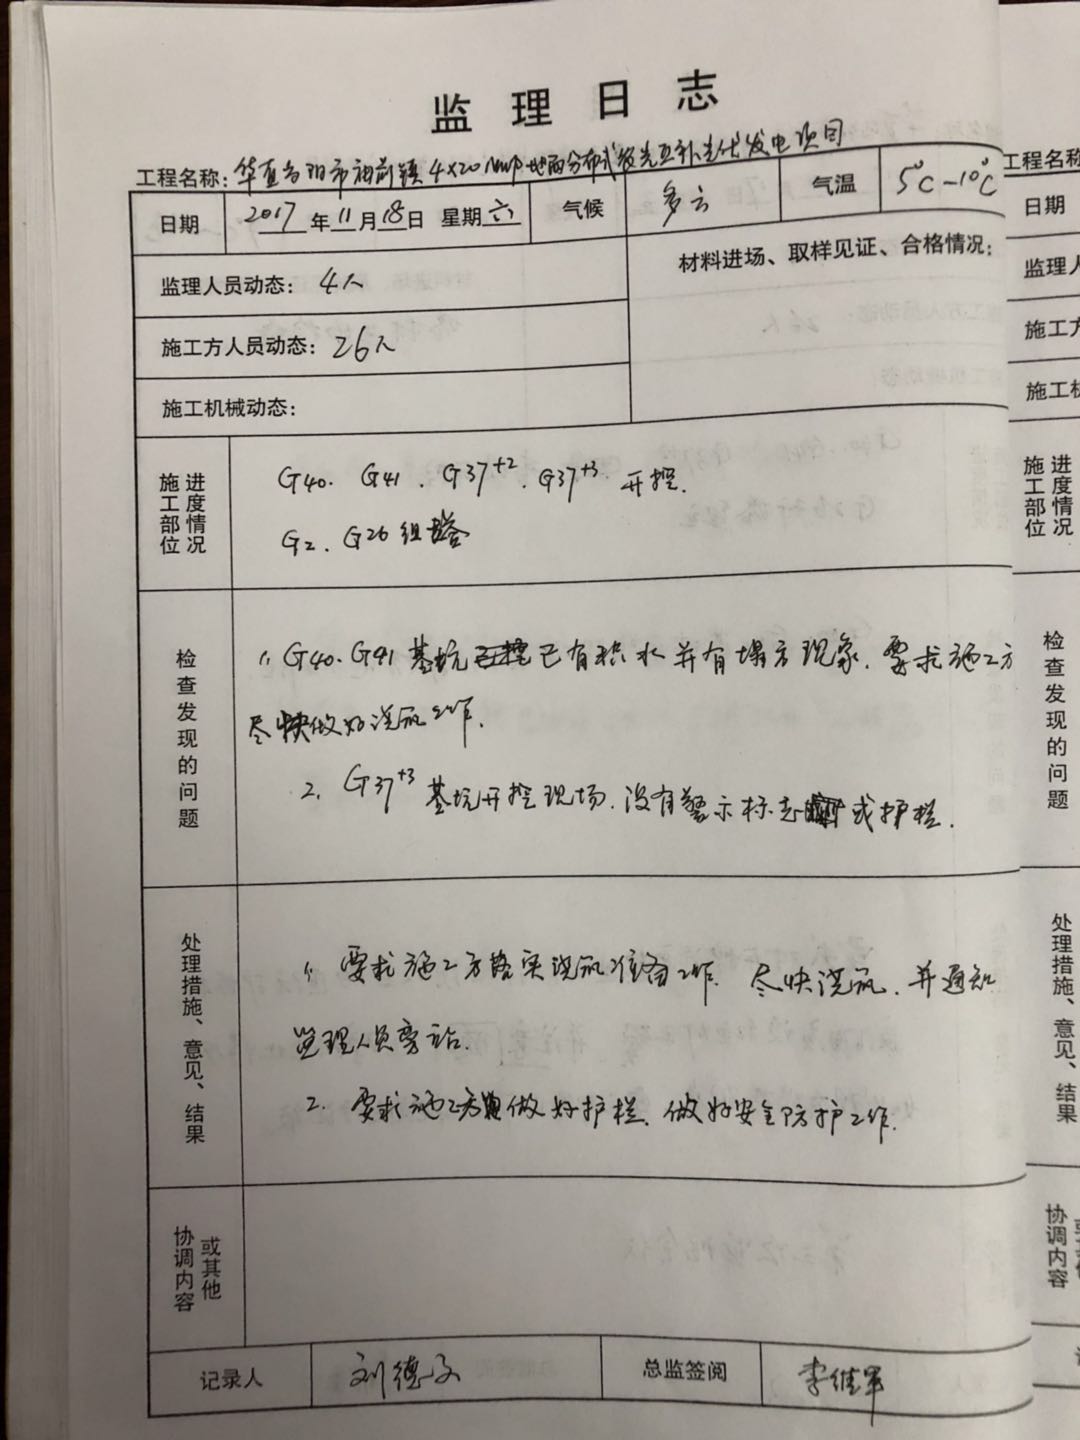 监理日志
工程名称: 4×20MWp地面分布式 光伏发电项目
日期 2017年11月18日 星期六 气候 多云 气温 5℃-10℃
监理人员动态: 4人
材料进场、取样见证、合格情况:
施工方人员动态: 26人
施工机械动态:
施工部位进度情况
G40. G41. G37+2. G37+3. 开挖.
G2. G26 组塔
检查发现的问题
1. G40. G41 基坑已有积水并有塌方现象. 要求施工方
尽快做好浇筑工作.
2. G37+3 基坑开挖现场. 没有警示标志或护栏.
处理措施、意见、结果
1. 要求施工方落实浇筑准备工作. 尽快浇筑. 并通知
监理人员旁站.
2. 要求施工方做好护栏. 做好安全防护工作.
协调内容或其他
记录人 刘德文 总监签阅 李继军
工程名称
日期
监理人
施工方
施工机
施工部位进度情况
检查发现的问题
处理措施、意见、结果
协调内容